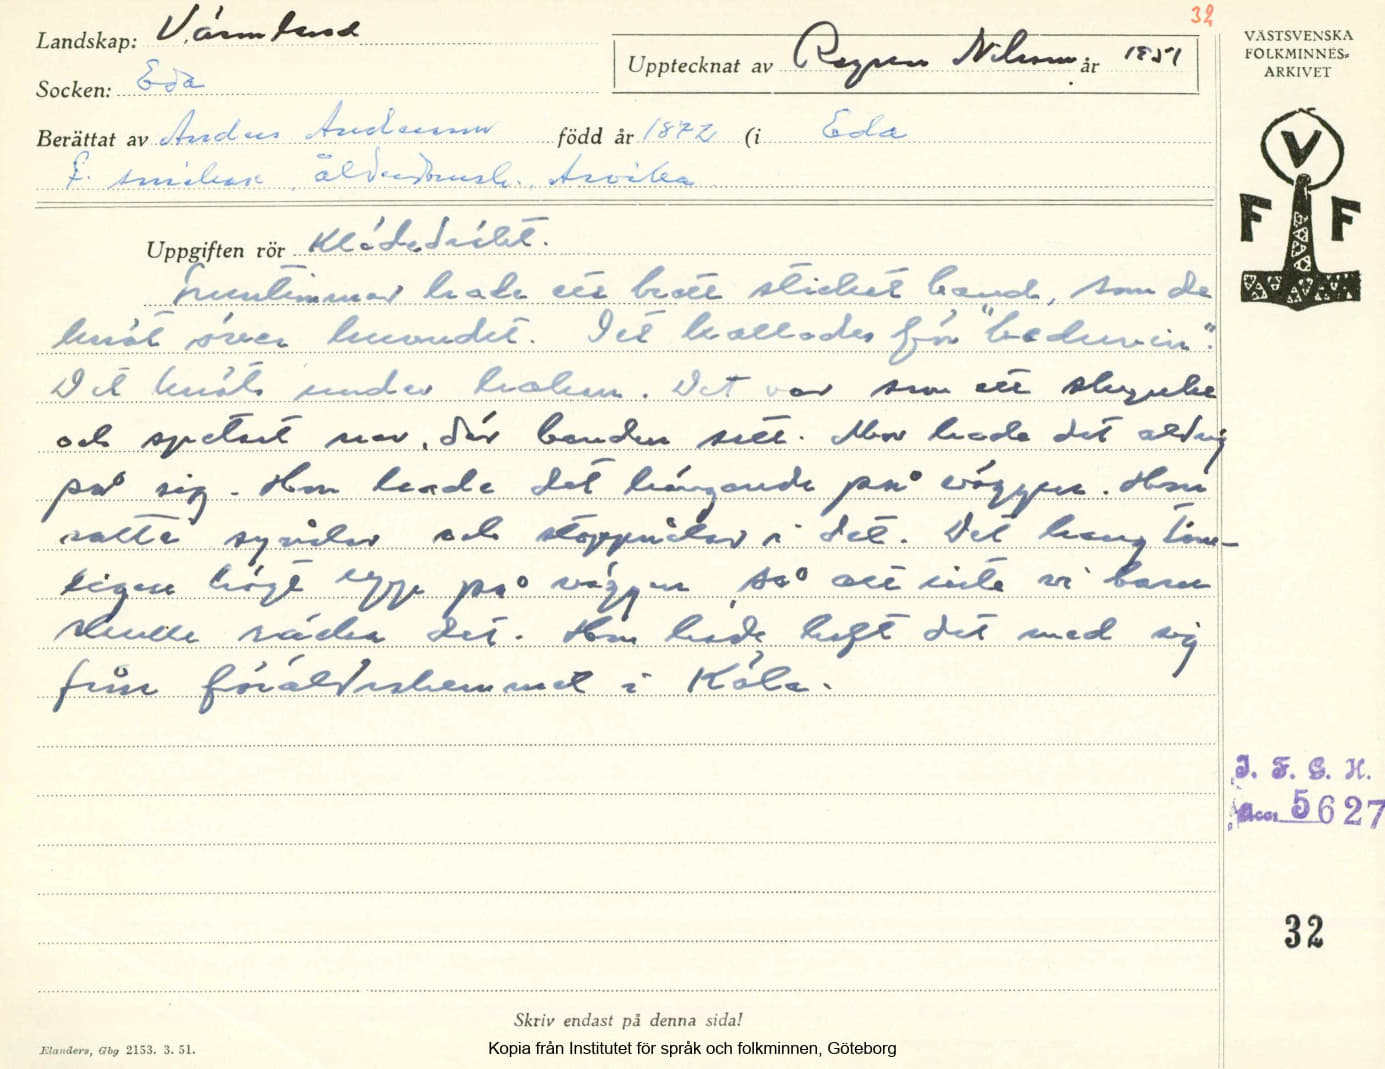 32
Landskap: Värmland
Upptecknat av Ragnar Nilsson år 1951
VÄSTSVENSKA
FOLKMINNES-
ARKIVET
Socken: Eda
Berättat av Anders Andersson född år 1872 (i Eda
F. snickare, ålderdomsh., Arvika
V
F F
Uppgiften rör Klädedräkt.
Fruntimmer hade ett brett stickat band, som de
knöt över huvudet. Det kallades för "beduin".
Det knöts under hakan. Det var som ett stycke
och spetsat ner, där banden satt. Mor hade det aldrig
på sig. Hon hade det hängande på väggen. Hon
satte synålar och stoppnålar i det. Det hang täm-
ligen högt uppe på väggen, så att inte vi barn
skulle räcka det. Hon hade haft det med sig
från föräldrahemmet i Köla.
I. F. G. H.
Acc. 5627
32
Skriv endast på denna sida!
Elanders, Gbg 2153. 3. 51.
Kopia från Institutet för språk och folkminnen, Göteborg